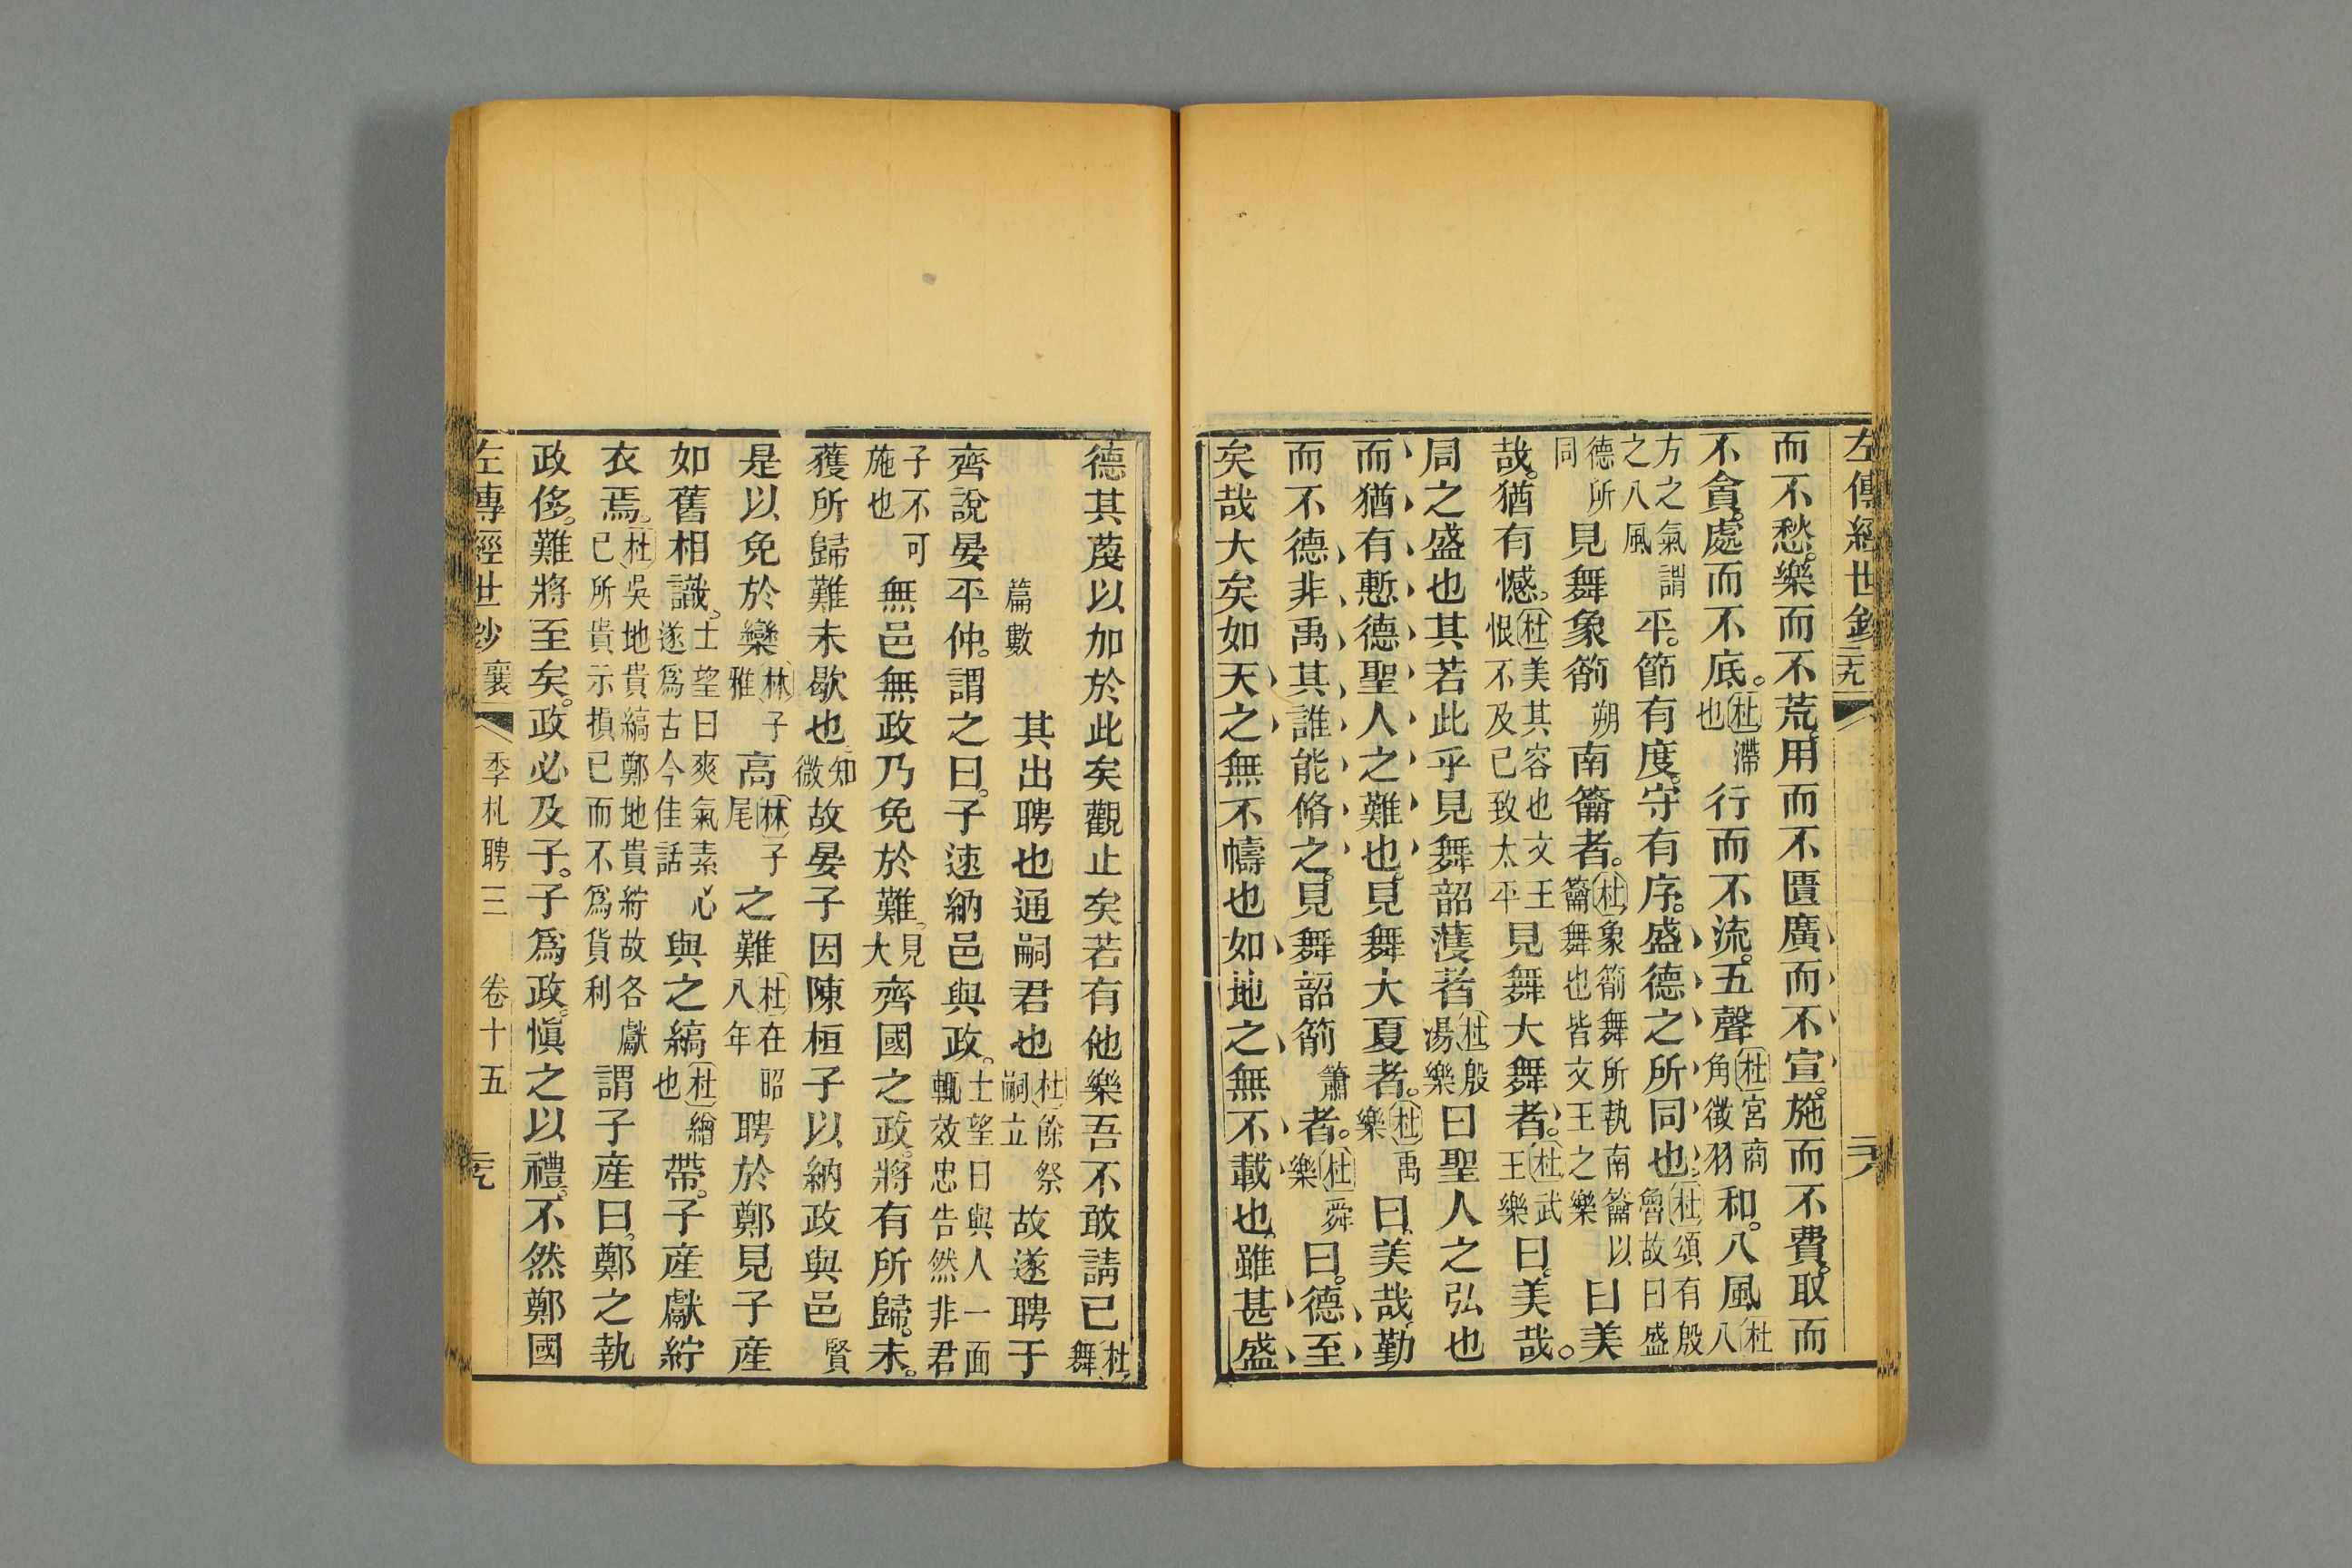 左傳經世鈔
而不愁。樂而不荒。用而不匱。廣而不宣。施而不費。取而
不貪。處而不底。杜滯也行而不流。五聲杜宮商角徵羽和。八風杜八
方之氣謂之八風平。節有度。守有序。盛德之所同也。杜頌有殷魯故曰盛
德所同見舞象箾朔南籥者。杜象箾舞所執南籥以籥舞也皆文王之樂曰美
哉。猶有憾。杜美其容也文王恨不及己致太平見舞大舞者。杜武王樂曰。美哉。
周之盛也其若此乎見舞韶濩者杜殷湯樂曰聖人之弘也
而猶有慙德聖人之難也。見舞大夏者。杜禹樂曰。美哉。勤
而不德非禹其誰能脩之。見舞韶箾簫者。杜舜樂曰。德至
矣哉大矣如天之無不幬也如地之無不載也。雖甚盛
德其蔑以加於此矣觀止矣若有他樂吾不敢請已杜舞
篇數其出聘也通嗣君也杜餘祭嗣立故遂聘于
齊說晏平仲。謂之曰。子速納邑與政。士望曰與人一面輒效忠告然非君
子不可施也無邑無政乃免於難。見大齊國之政。將有所歸。未。
獲所歸難未歇也知微故晏子因陳桓子以納政與邑賢
是以免於欒林子雅高林子尾之難杜在昭八年聘於鄭見子産
如舊相識。士望曰爽氣素心遂爲古今佳話與之縞杜繒也帶。子産獻紵
衣焉。杜吳地貴縞鄭地貴紵故各獻己所貴示損己而不爲貨利謂子産曰。鄭之執
政侈。難將至矣。政必及子。子爲政。愼之以禮。不然鄭國
左傳經世鈔 襄 季札聘三 卷十五